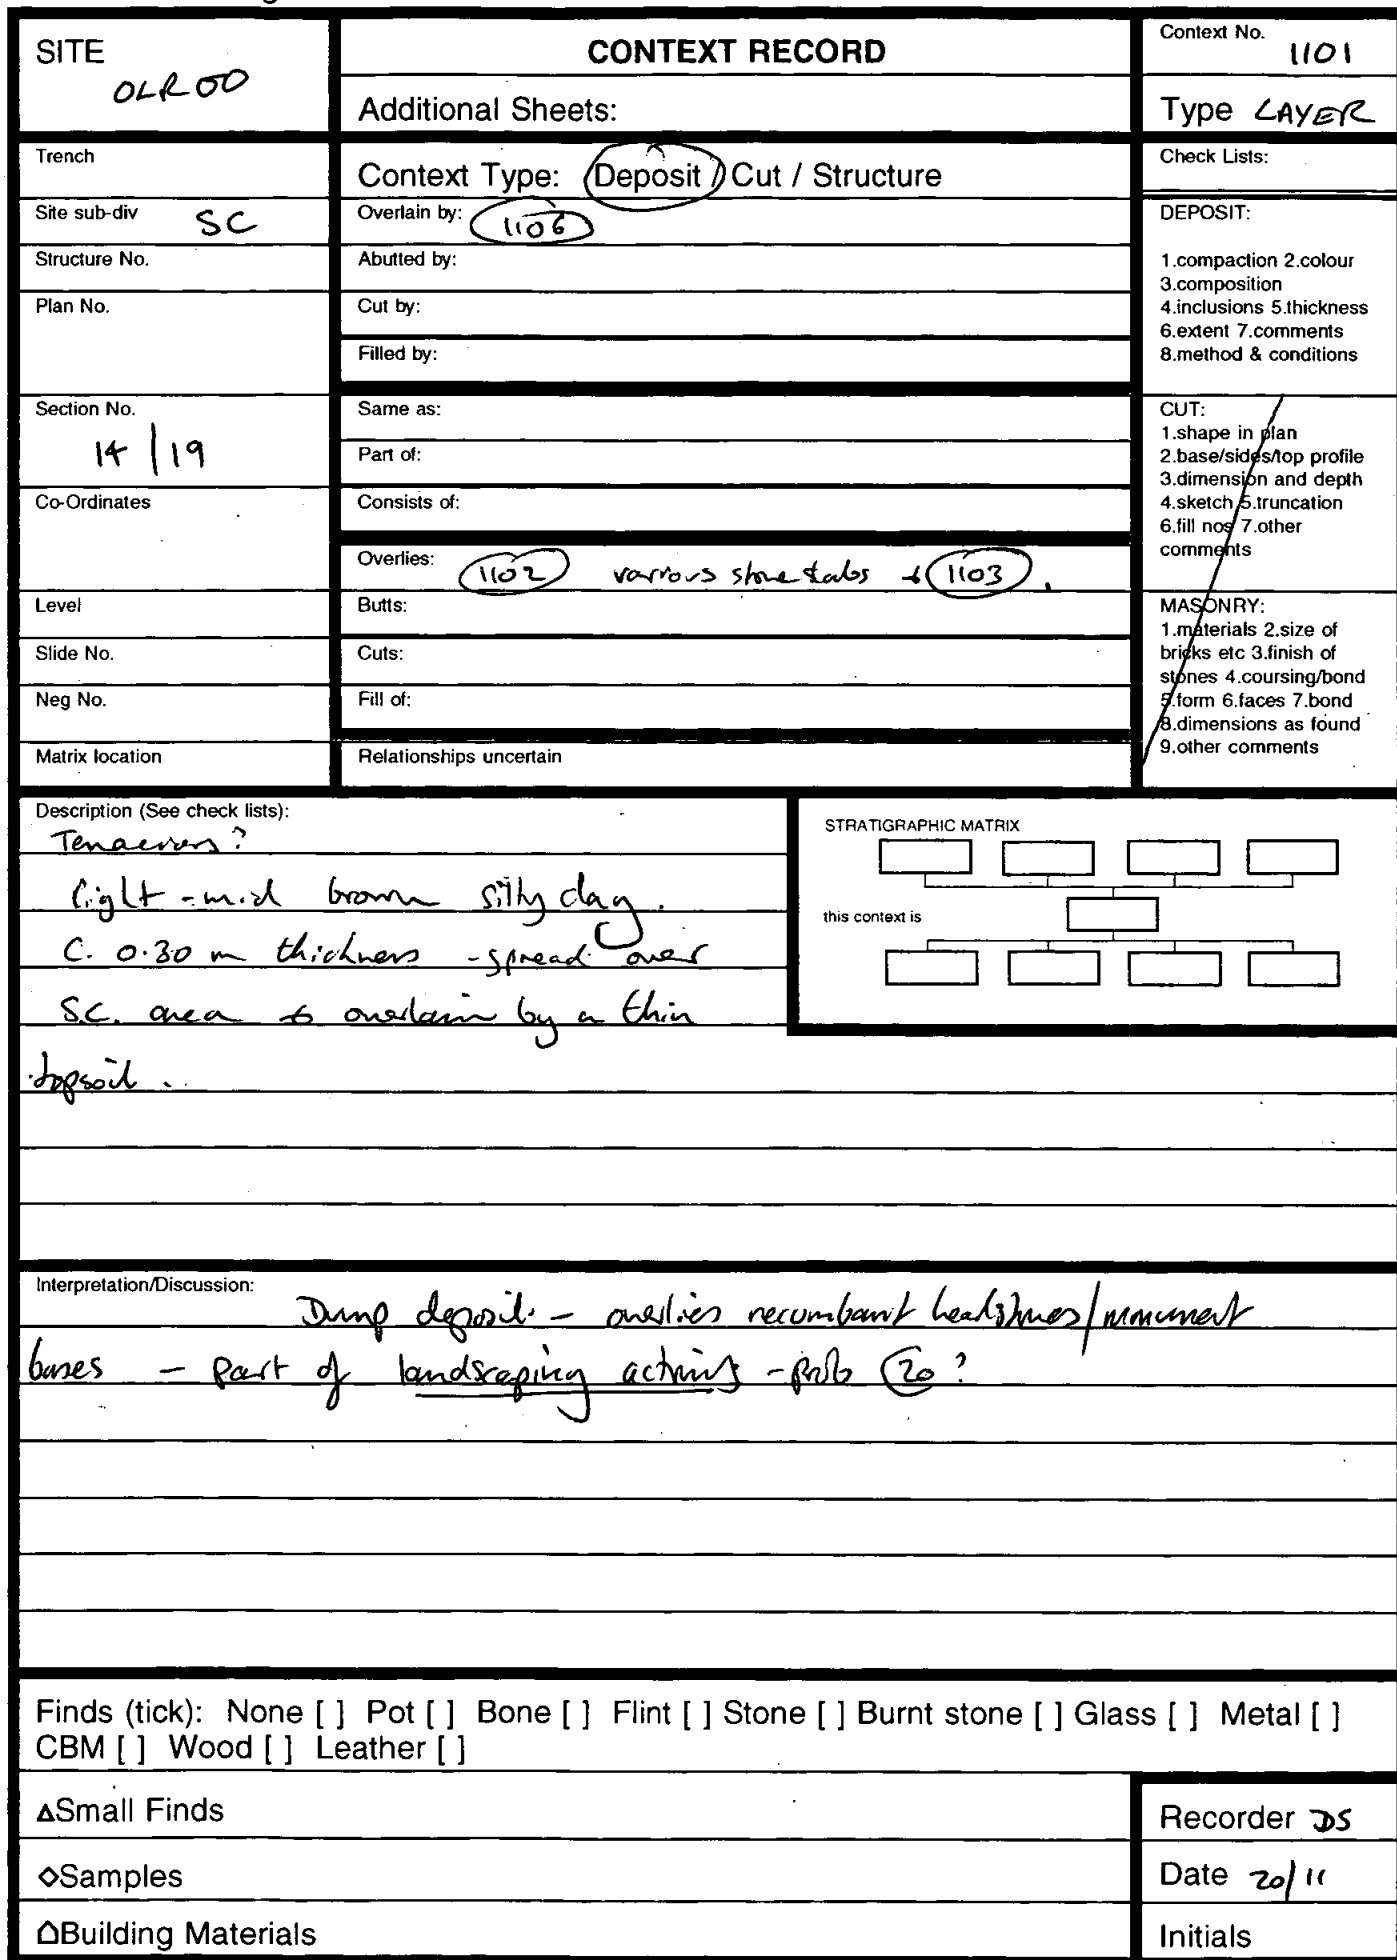 SITE
OLR00
CONTEXT RECORD
Additional Sheets:
Context No.
1101
Type LAYER
Trench
Context Type: Deposit / Cut / Structure
Check Lists:
Site sub-div SC
Overlain by: 1106
Structure No.
Abutted by:
Plan No.
Cut by:
Filled by:
DEPOSIT:
1.compaction 2.colour
3.composition
4.inclusions 5.thickness
6.extent 7.comments
8.method & conditions
Section No.
14 | 19
Same as:
Part of:
Co-Ordinates
Consists of:
Overlies: 1102 various stone & 1103.
CUT:
1.shape in plan
2.base/sides/top profile
3.dimension and depth
4.sketch 5.truncation
6.fill nos 7.other
comments
Level
Butts:
Slide No.
Cuts:
Neg No.
Fill of:
Matrix location
Relationships uncertain
MASONRY:
1.materials 2.size of
bricks etc 3.finish of
stones 4.coursing/bond
5.form 6.faces 7.bond
8.dimensions as found
9.other comments
Description (See check lists):
light - mid brown silty clay.
C. 0.30 m thickness - spread over
S.C. area & overlain by a thin
topsoil.
STRATIGRAPHIC MATRIX
this context is
Interpretation/Discussion:
Dump deposit - overlies recumbant headstones/monument
bases - part of landscaping activity - prob 20?
Finds (tick): None [ ] Pot [ ] Bone [ ] Flint [ ] Stone [ ] Burnt stone [ ] Glass [ ] Metal [ ]
CBM [ ] Wood [ ] Leather [ ]
△Small Finds
◇Samples
Building Materials
Recorder DS
Date 20/11
Initials